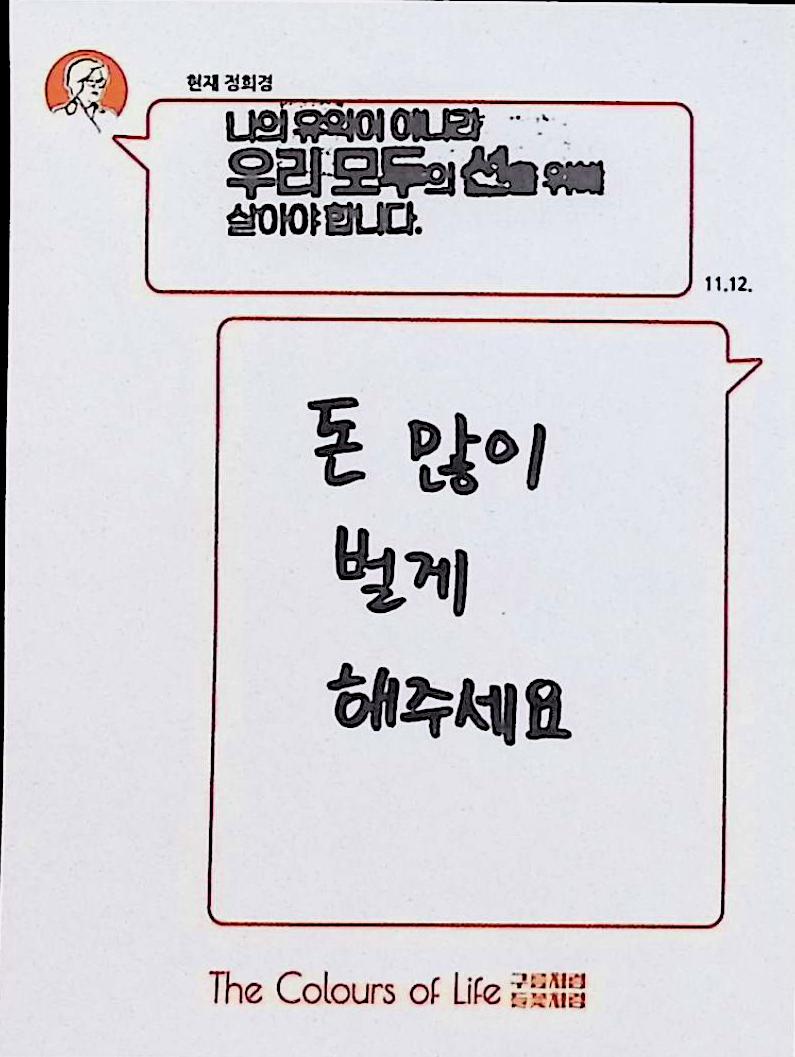 현재 정희경
나의 유익이 아니라
우리 모두의 선을 위해
살아야 합니다.
11.12.
돈 많이
벌게
해주세요
The Colours of Life 구름처럼
들꽃처럼